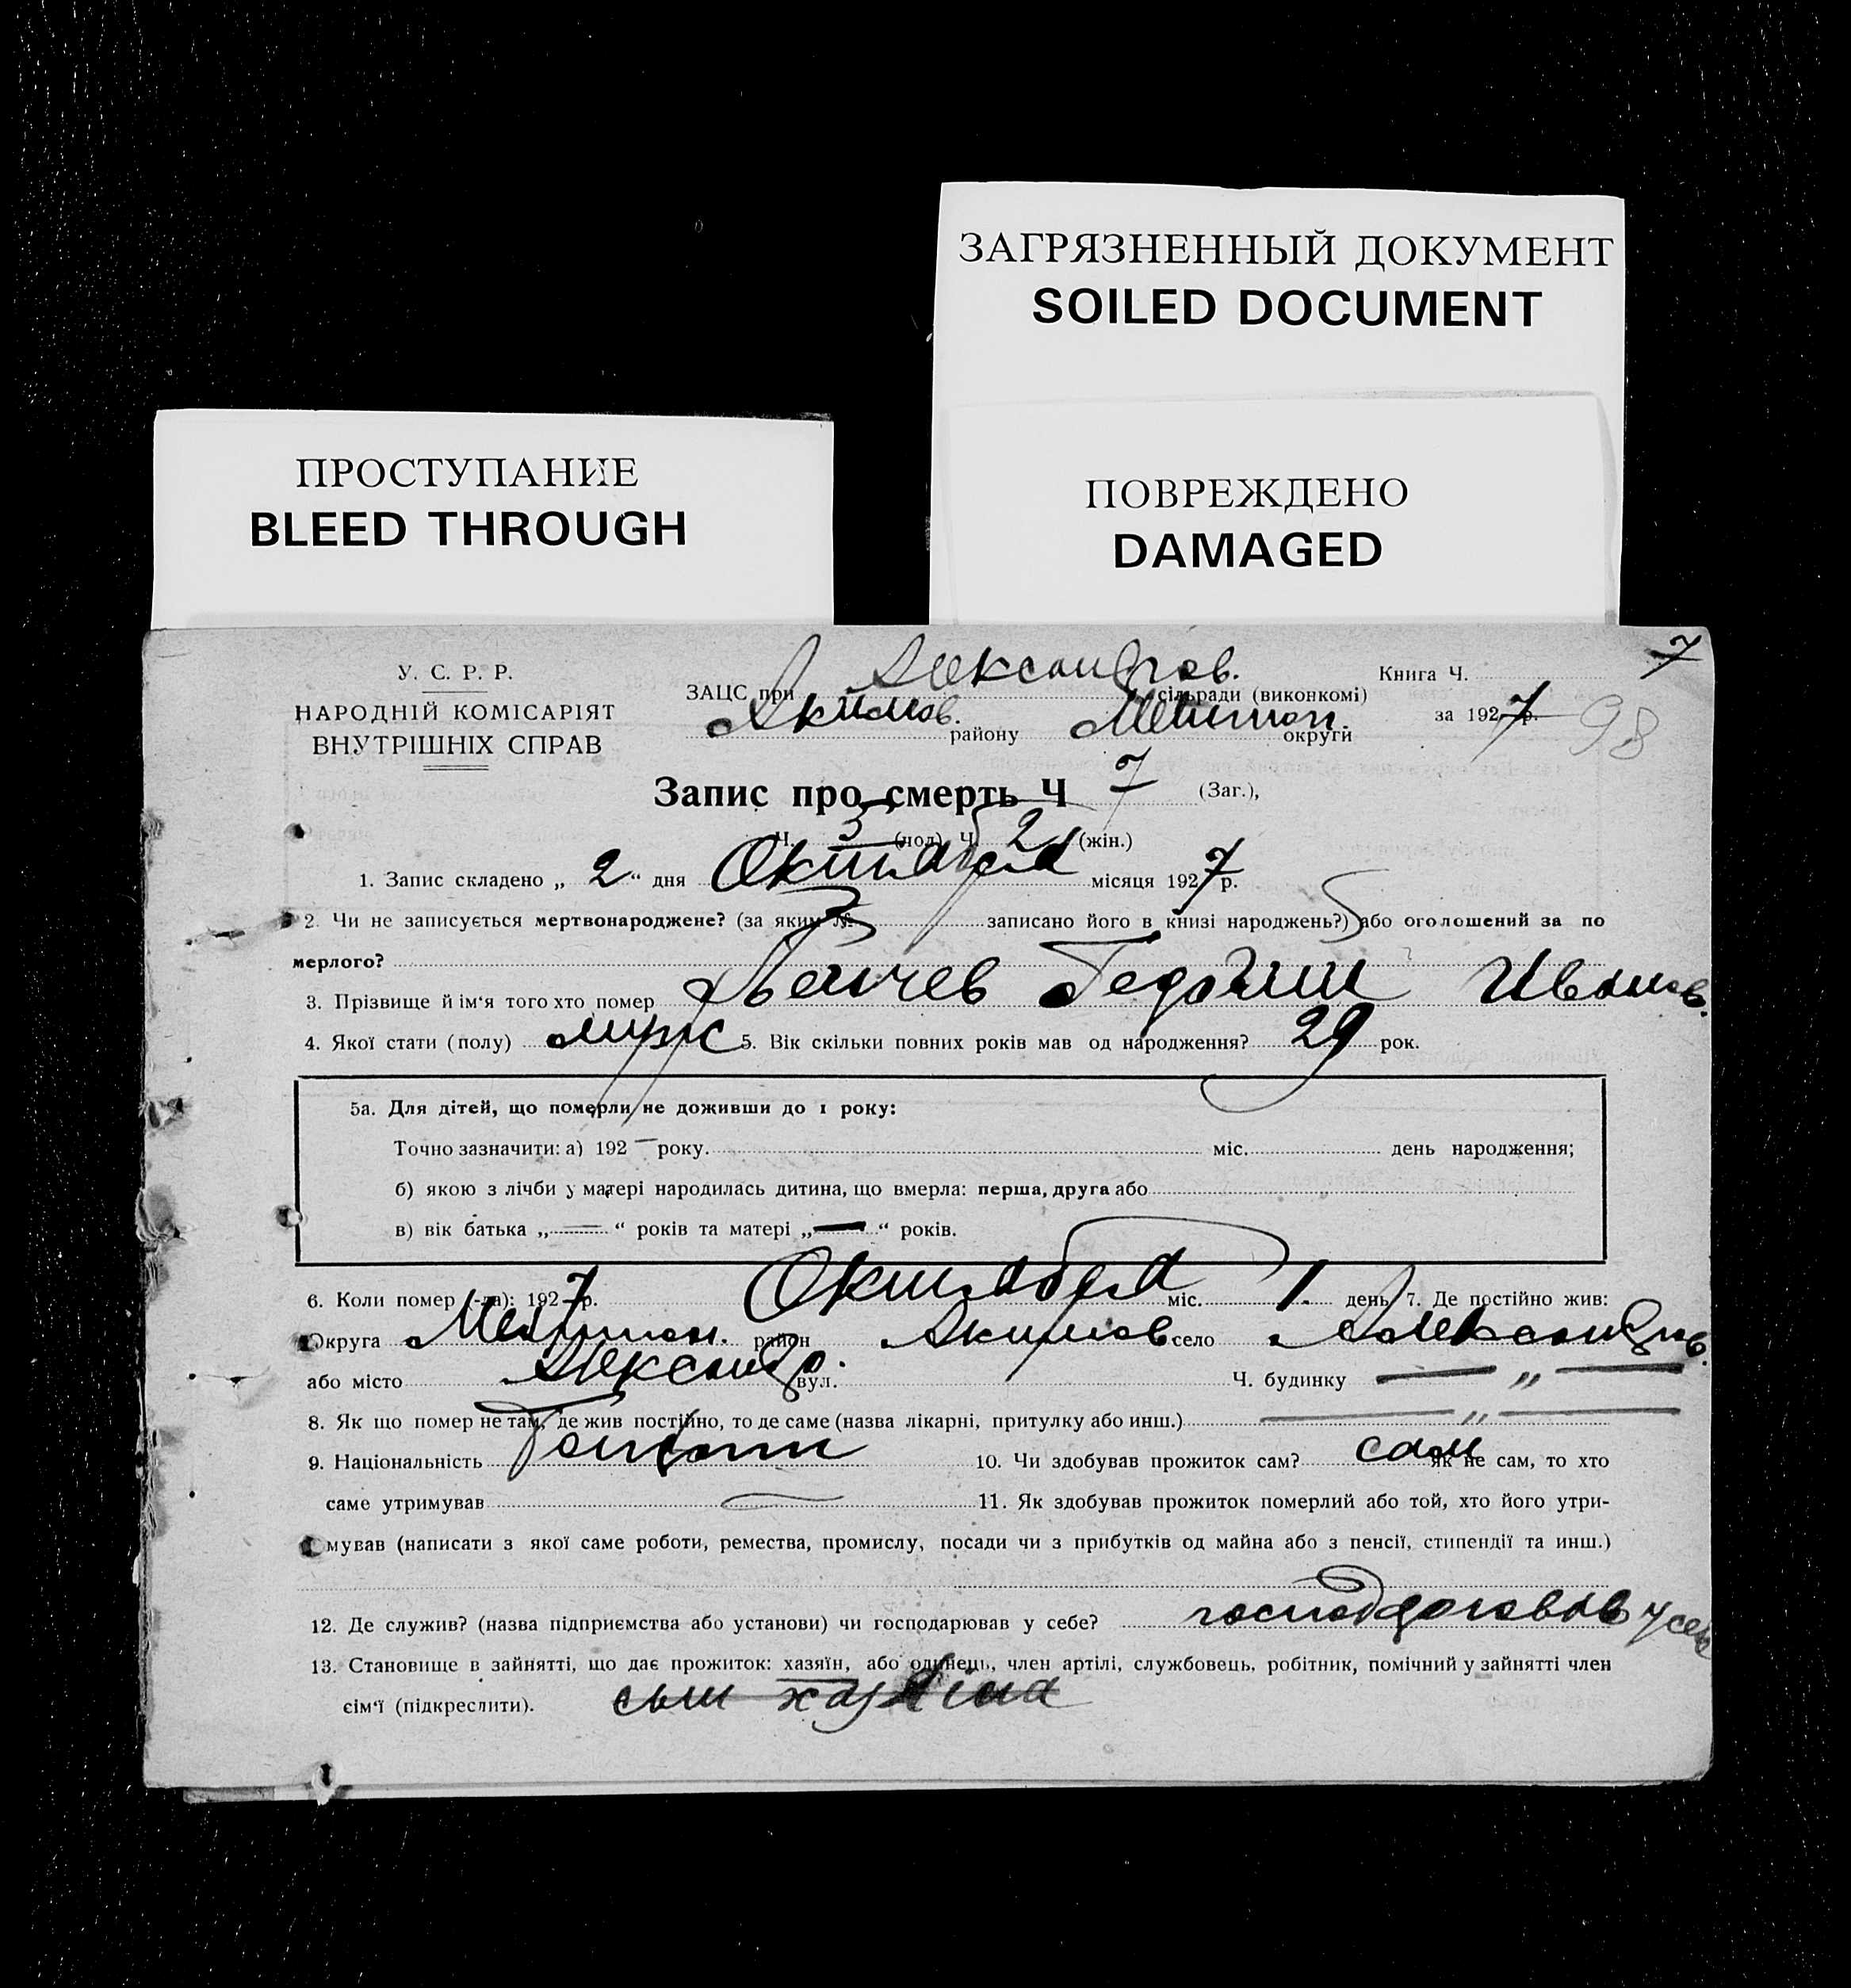 ЗАГРЯЗНЕННЫЙ ДОКУМЕНТ
SOILED DOCUMENT
ПРОСТУПАНИЕ
BLEED THROUGH
ПОВРЕЖДЕНО
DAMAGED
7
У. С. Р. Р.
НАРОДНІЙ КОМІСАРІЯТ
ВНУТРІШНІХ СПРАВ
ЗАЦС при Александров. сільради (виконкомі)
Акимов. району Мелитоп. округи
Книга Ч.
за 1927 р. 98
Запис про смерть Ч 7 (Заг.),
Ч. 5 (чол) Ч. 2 (жін.)
1. Запис складено „ 2 “ дня Октября місяця 1927 р.
2. Чи не записується мертвонароджене? (за яким № записано його в книзі народжень?) або оголошений за по
мерлого?
3. Прізвище й ім‘я того хто помер Иванов.
4. Якої стати (полу) муж 5. Вік скільки повних років мав од народження? 29 рок.
5а. Для дітей, що померли не доживши до 1 року:
Точно зазначити: а) 192 — року. міс. день народження;
б) якою з лічби у матері народилась дитина, що вмерла: перша, друга або
в) вік батька „ — “ років та матері „ — “ років.
6. Коли помер (-ла): 1927 р. Октября міс. 1. день 7. Де постійно жив:
Округа Мелитоп. район Акимов село Александров.
або місто Александр. вул. Ч. будинку — „ —
8. Як що помер не там, де жив постійно, то де саме (назва лікарні, притулку або инш.) — „ —
9. Національність 10. Чи здобував прожиток сам? сам як не сам, то хто
саме утримував — 11. Як здобував прожиток померлий або той, хто його утри-
мував (написати з якої саме роботи, ремества, промислу, посади чи з прибутків од майна або з пенсії, стипендії та инш.)
12. Де служив? (назва підприємства або установи) чи господарював у себе? у себе
13. Становище в зайнятті, що дає прожиток: хазяїн, або одинець, член артілі, службовець, робітник, помічний у зайнятті член
сім‘ї (підкреслити). сын хазяіна